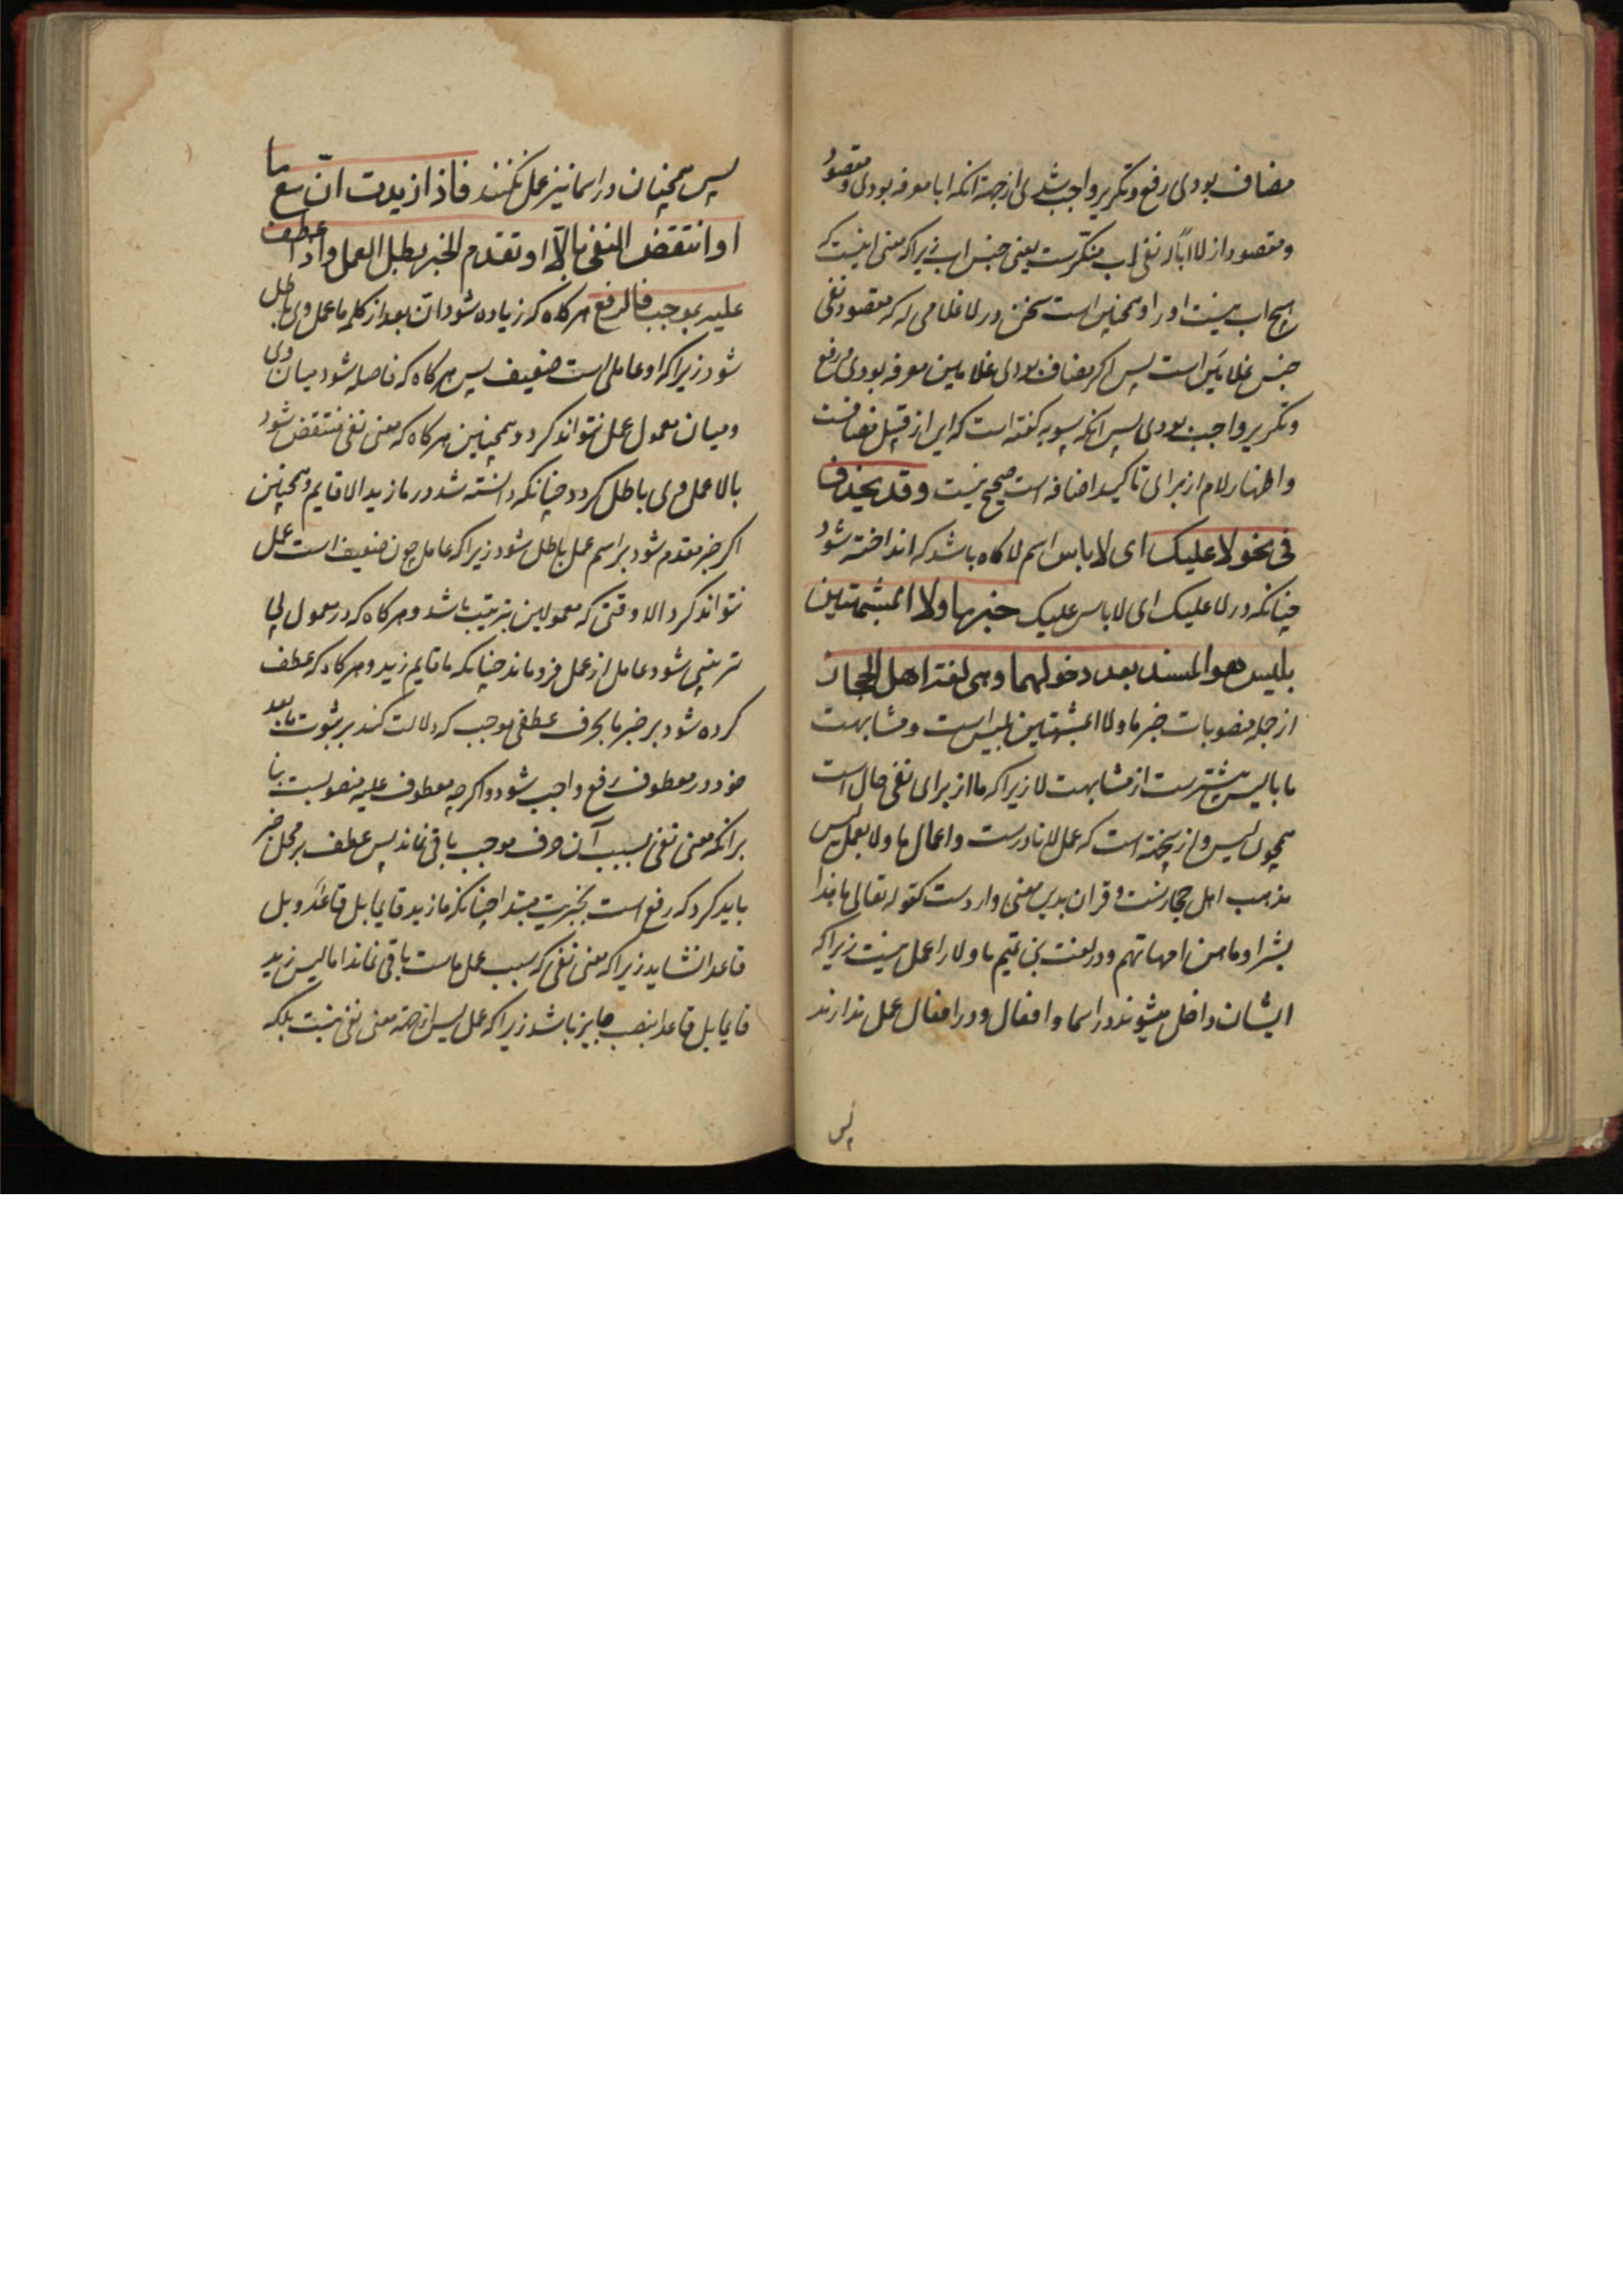 مضاف بودی رفع و تکریر واجب شدی از جهة انکه ابا معرفه بودی و مقصود
و مقصود از لا ابا له نفی اب منکرست یعنی جنس اب زیرا که معنی اینست که
هیچ اب نیست او را و همچنین است سخن در لا غلامی له که مقصود نفی
جنس غلامین است پس اگر مضاف بودی غلامین معرفه بودی و رفع
و تکریر واجب بودی پس انکه سیبویه کفته است که این از قبیل مضافست
و اظهار لام از برای تاکید اضافه است صحیح نیست وقد یحذف
فی نحو لا علیک ای لا باس اسم لا کاه باشد که انداخته شود
چنانکه در لا علیک ای لا باس علیک خبر ما ولا المشبهتین
بلیس هو المسند بعد دخولهما وهی لغة اهل الحجاز
از جمله منصوبات خبر ما ولا المشبهتین بلیس است و مشابهت
ما بلیس بیشترست از مشابهت لا زیرا که ما از برای نفی حال است
همچون لیس و از نجهة است که عمل لا نادرست و اعمال ما ولا بعمل لیس
مذهب اهل حجازست و قران بدین معنی واردست کقوله تعالی ما هذا
بشرا وما هن امهاتهم و در لغت بنی تمیم ما و لا را عمل نیست زیرا که
ایشان داخل میشوند در اسما و افعال و در افعال عمل ندارند
پس
پس همچنان در اسما نیز عمل نکنند فاذا زیدت ان مع ما
او انتقض النفی بالا او تقدم الخبر بطل العمل واذا عطف
علیه بموجب فالرفع هر کاه که زیاده شود ان بعد از کلمه ما عمل وی باطل
شود زیرا که او عاملی است ضعیف پس هر کاه که فاصله شود میان وی
و میان معمول عمل نتواند کرد و همچنین هر کاه که معنی نفی منتقض شود
بالا عمل وی باطل کردد چنانکه دانسته شد در ما زید الا قایم و همچنین
اکر خبر مقدم شود بر اسم عمل باطل شود زیرا که عامل چون ضعیف است عمل
نتواند کرد الا وقتی که معمولین بترتیب باشد و هر کاه که در معمول بی
ترتیبی شود عامل از عمل فرو ماند چنانکه ما قایم زید و هر کاه که عطف
کرده شود بر خبر ما بحرف عطفی موجب که دلالت کند بر ثبوت ما بعد
خود در معطوف رفع واجب شود و اکر چه معطوف علیه منصوبست بنا
برانکه معنی نفی بسبب آن حرف موجب باقی نماند پس عطف بر محل خبر
باید کرد که رفع است بخبریت مبتدا چنانکه ما زید قایما بل قاعد و بل
قاعدا نشاید زیرا که معنی نفی که سبب عمل ماست باقی نماند اما لیس زید
قایما بل قاعدا بنصب جایز باشد زیرا که عمل لیس از جهة معنی نفی نیست بلکه